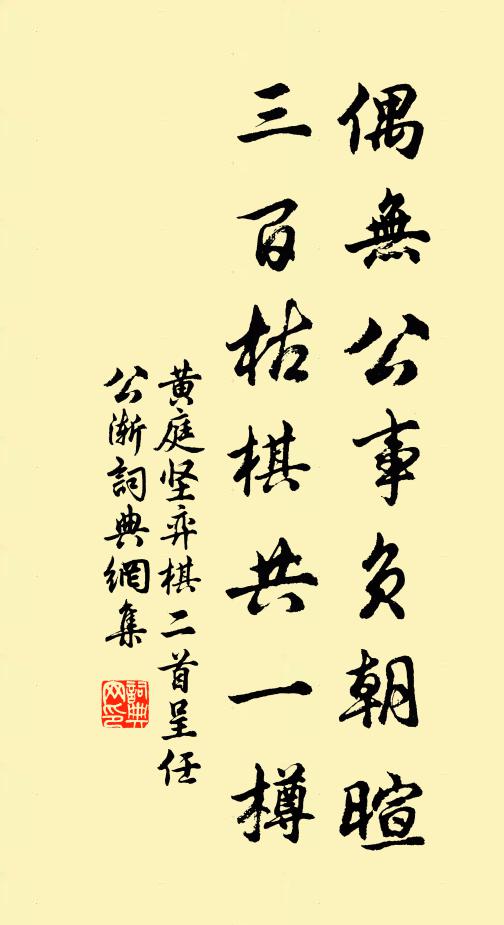 偶無公事负朝暄
三百枯棋共一樽
黄庭坚弈棋二首呈任
公渐詞典網集
詞典
网印